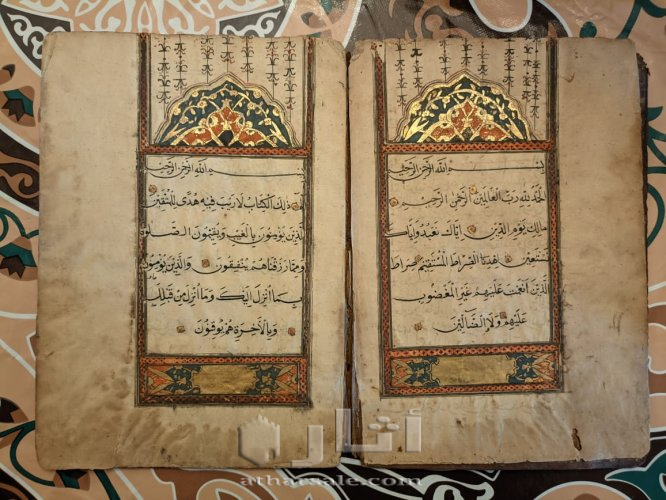 بسم الله الرحمن الرحيم
الحمد لله رب العالمين الرحمن الرحيم
مالك يوم الدين اياك نعبد واياك
نستعين اهدنا الصراط المستقيم صراط
الذين انعمت عليهم غير المغضوب
عليهم ولا الضالين
بسم الله الرحمن الرحيم
الم ذلك الكتاب لا ريب فيه هدى للمتقين
الذين يؤمنون بالغيب ويقيمون الصلوة
ومما رزقناهم ينفقون والذين يؤمنون
بما انزل اليك وما انزل من قبلك
وبالاخرة هم يوقنون
أثار
atharsale.com